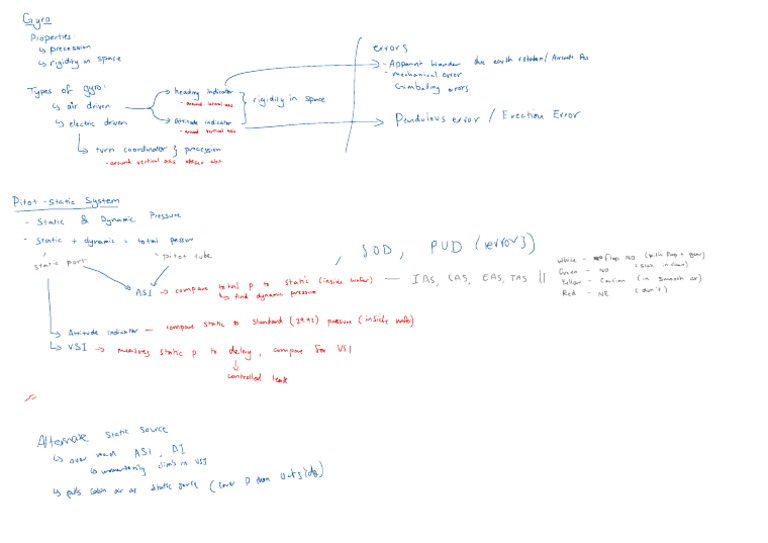 Gyro
Properties:
↳ precession
↳ rigidity in space
Types of gyro:
↳ air driven
↳ electric driven
heading indicator
- around lateral axis
Attitude indicator
- around vertical axis
} rigidity in space
↳ turn coordinator } procession
- around vertical axis
errors
- Apparent wander due earth rotation / Aircraft
- mechanical error
Gimbaling errors
Pendulous error / Erection Error
Pitot-Static System
- Static & Dynamic Pressure
- Static + dynamic = total pressure
static port
pitot tube
, SOD, PUD (errors)
ASI → compare total p to static (inside wafer) — IAS, CAS, EAS, TAS ||
↳ find dynamic pressure
White - Flap
Green - NO
Yellow - Caution (in smooth air)
Red - NE (don't)
↳ Attitude indicator — compare static to standard (29.92) pressure (inside wafer)
↳ VSI → measures static p to delay, compare for VSI
↓
controlled leak
Alternate static source
↳ over read ASI,
↳ momentarily climb in VSI
↳ pulls cabin air as static source (lower P than outside)